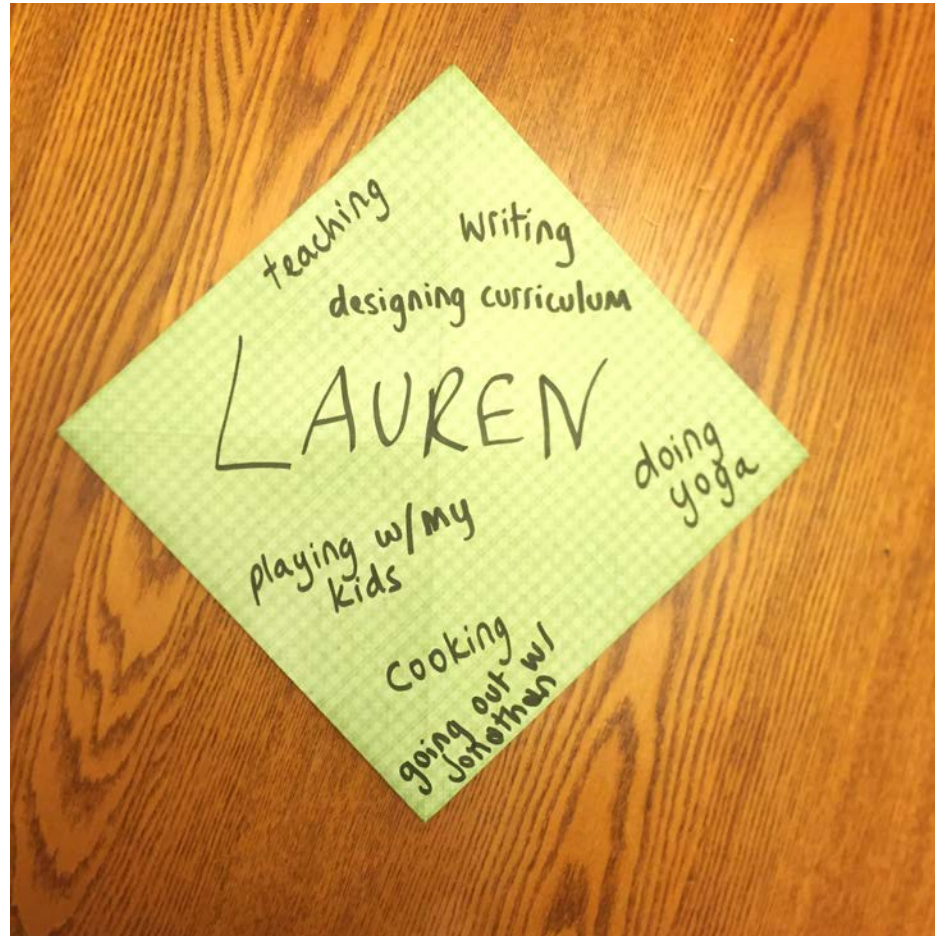 teaching
writing
designing curriculum
LAUREN
doing
yoga
playing w/my
kids
cooking
going out w/
Jonathan